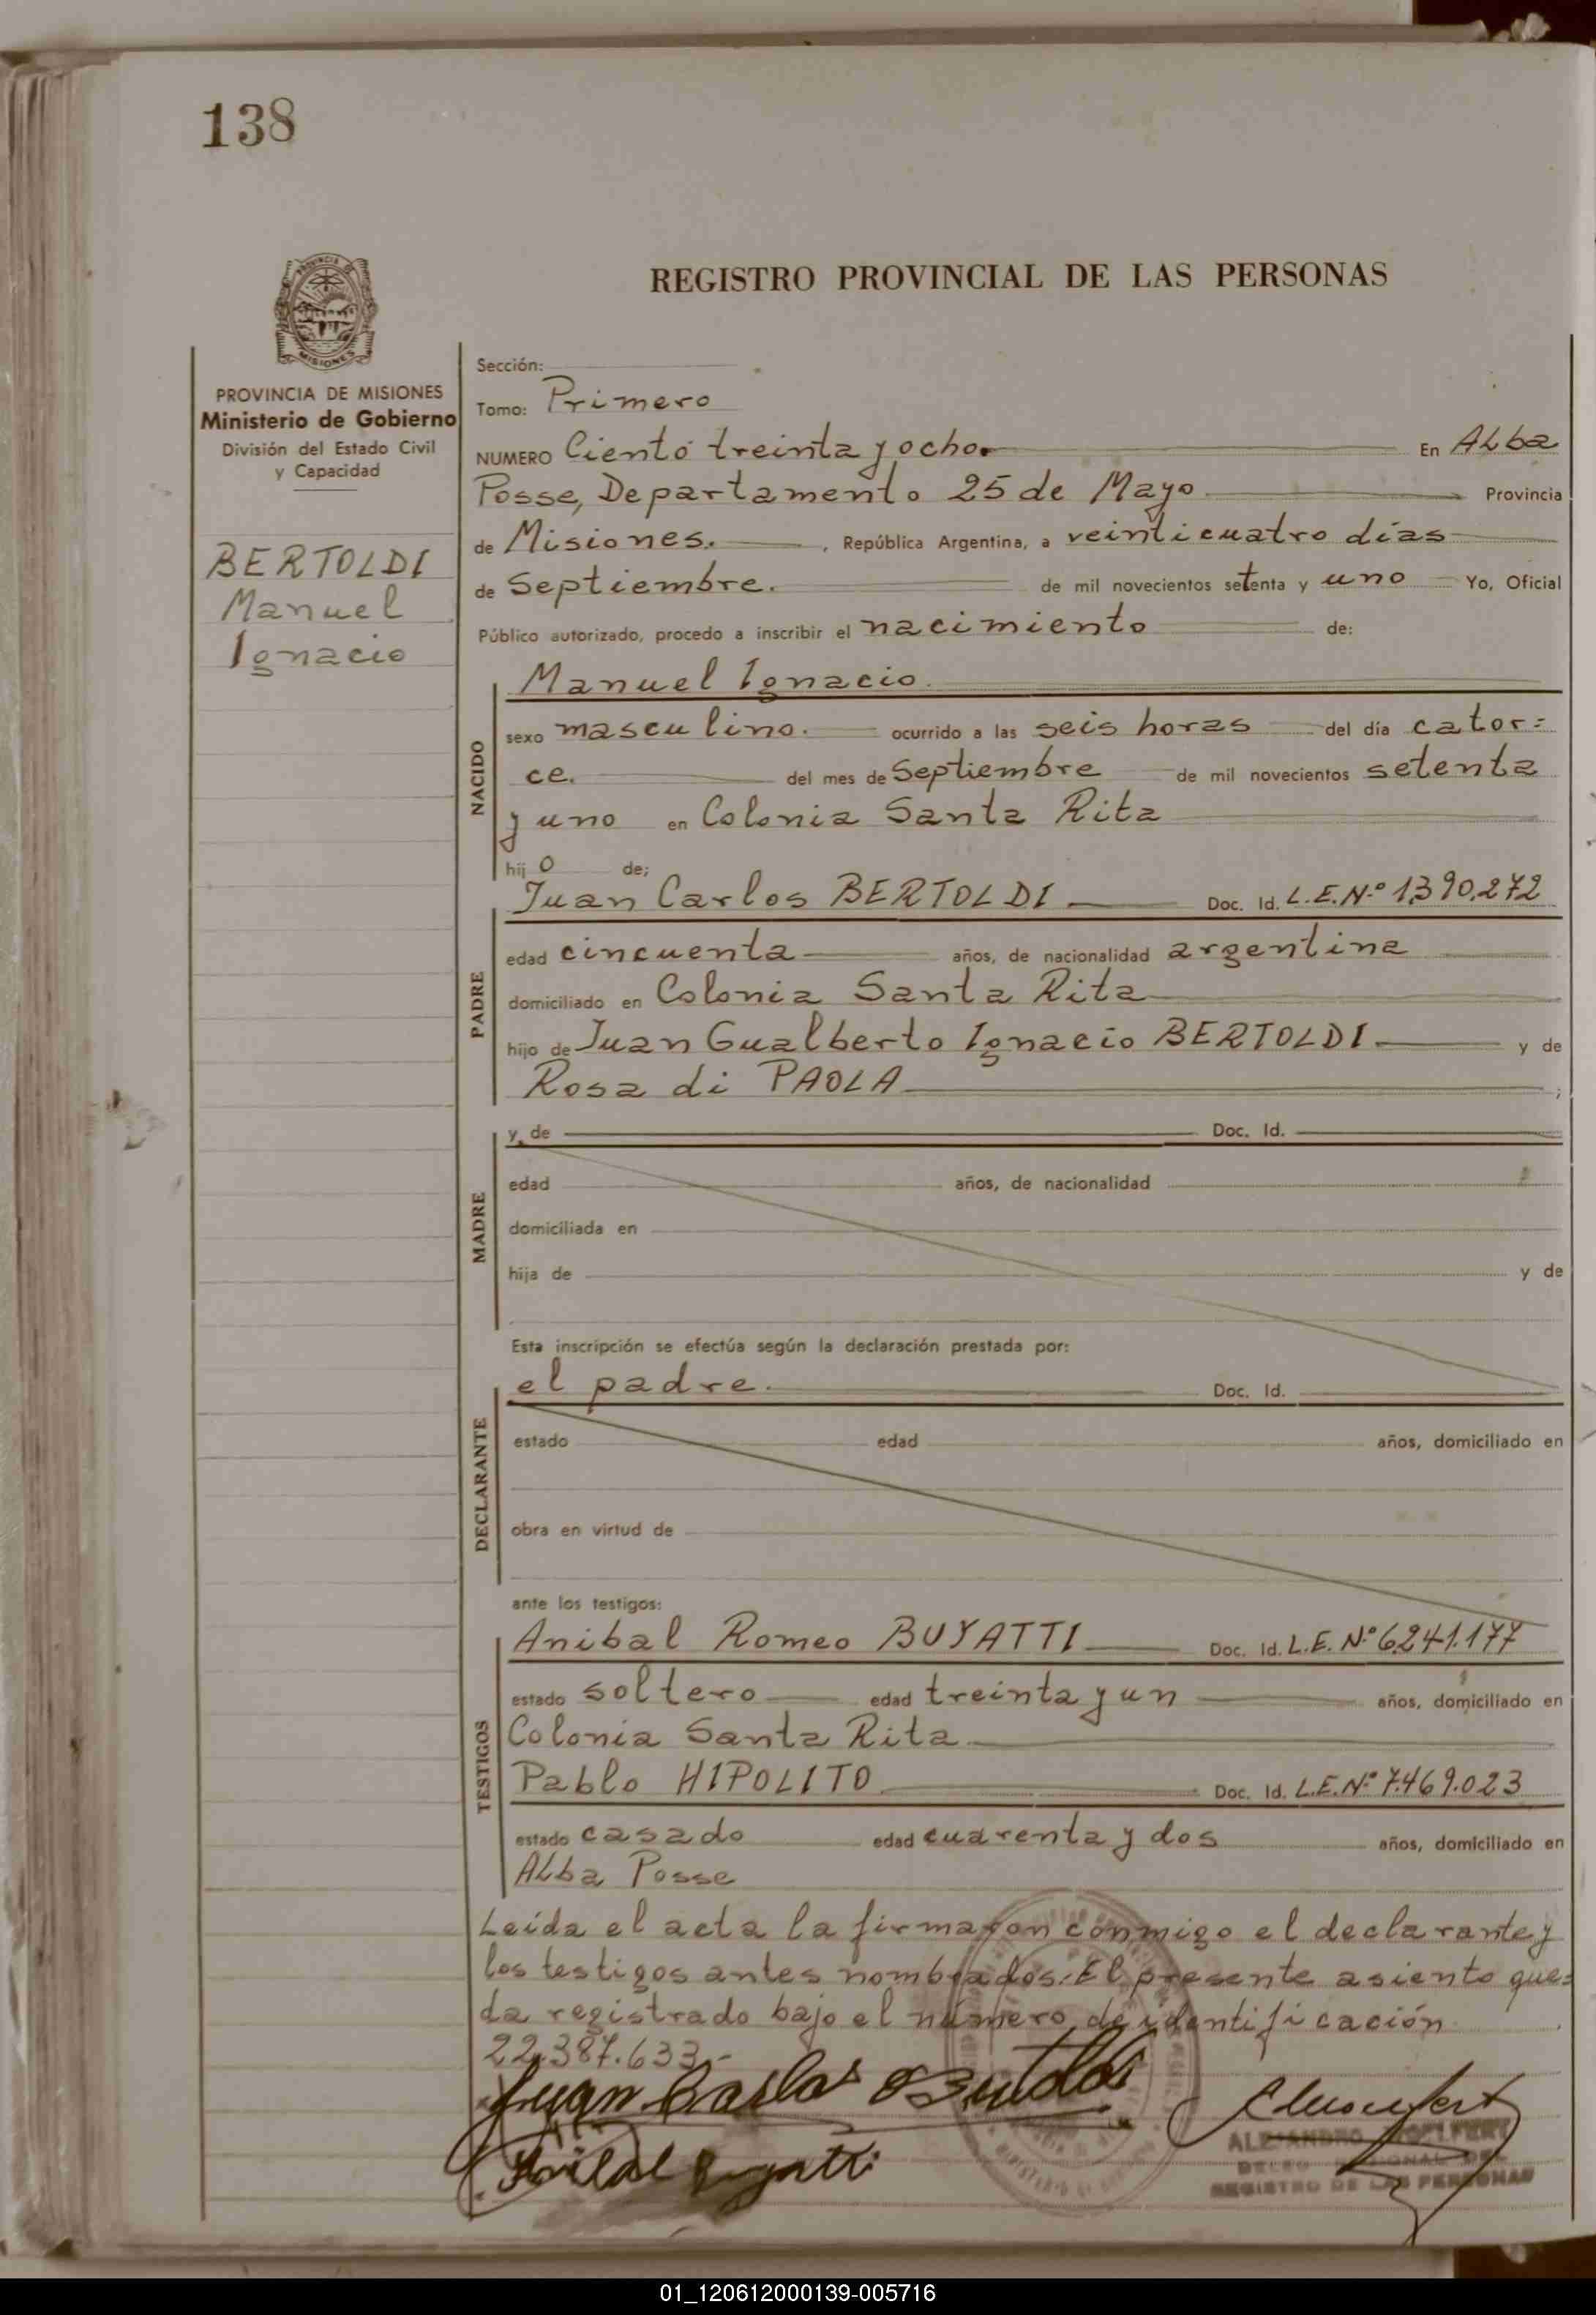 138
PROVINCIA DE MISIONES
Ministerio de Gobierno
División del Estado Civil
y Capacidad
BERTOLDI
Manuel
Ignacio
REGISTRO PROVINCIAL DE LAS PERSONAS
Sección:
Tomo: Primero
NUMERO Ciento treinta y ocho. En ALba
Posse, Departamento 25 de Mayo Provincia
de Misiones. , República Argentina, a veinticuatro días
de Septiembre. de mil novecientos setenta y uno Yo, Oficial
Público autorizado, procedo a inscribir el nacimiento de:
NACIDO
Manuel Ignacio
sexo masculino. ocurrido a las seis horas del día cator=
ce. del mes de Septiembre de mil novecientos setenta
y uno en Colonia Santa Rita
hij o de;
PADRE
Juan Carlos BERTOLDI Doc. Id. L.E.Nº 1.390.272
edad cincuenta años, de nacionalidad argentina
domiciliado en Colonia Santa Rita
hijo de Juan Gualberto Ignacio BERTOLDI y de
Rosa di PAOLA ;
MADRE
y de Doc. Id.
edad años, de nacionalidad
domiciliada en
hija de y de
Esta inscripción se efectúa según la declaración prestada por:
DECLARANTE
el padre. Doc. Id.
estado edad años, domiciliado en
obra en virtud de
ante los testigos:
TESTIGOS
Anibal Romeo BUYATTI Doc. Id. L.E. Nº 6.241.177
estado soltero edad treinta y un años, domiciliado en
Colonia Santa Rita
Pablo HIPOLITO Doc. Id. L.E.Nº 7.469.023
estado casado edad cuarenta y dos años, domiciliado en
ALba Posse
Leída el acta la firmaron conmigo el declarante y
los testigos antes nombrados. El presente asiento que=
da registrado bajo el número de identificación
22.387.633.-
Juan Carlos Bertoldi
Anibal Buyatti
ALEJANDRO
REGISTRO DE LAS PERSONAS
01_120612000139-005716